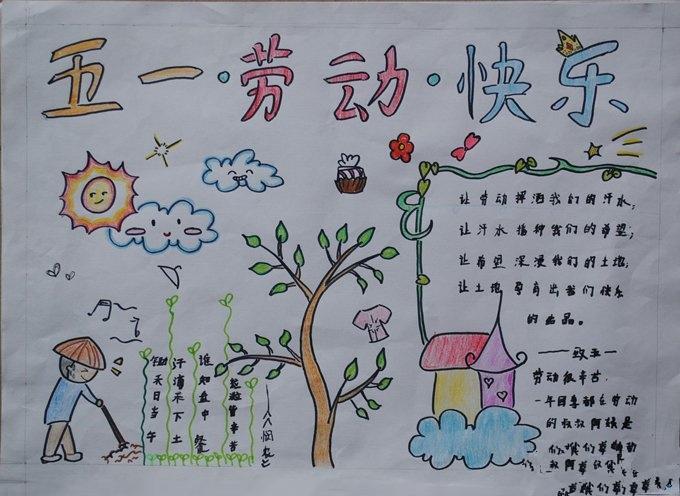 五一·劳动·快乐
让劳动挥洒我们的汗水;
让汗水播种我们的希望;
让希望深浸我们的土地;
让土地孕育出我们快乐
的品。
——致五一
劳动很辛苦,
一年四季都在劳动
的叔叔阿姨是
锄禾日当午
汗滴禾下土
谁知盘中餐
粒粒皆辛苦
——《悯农》